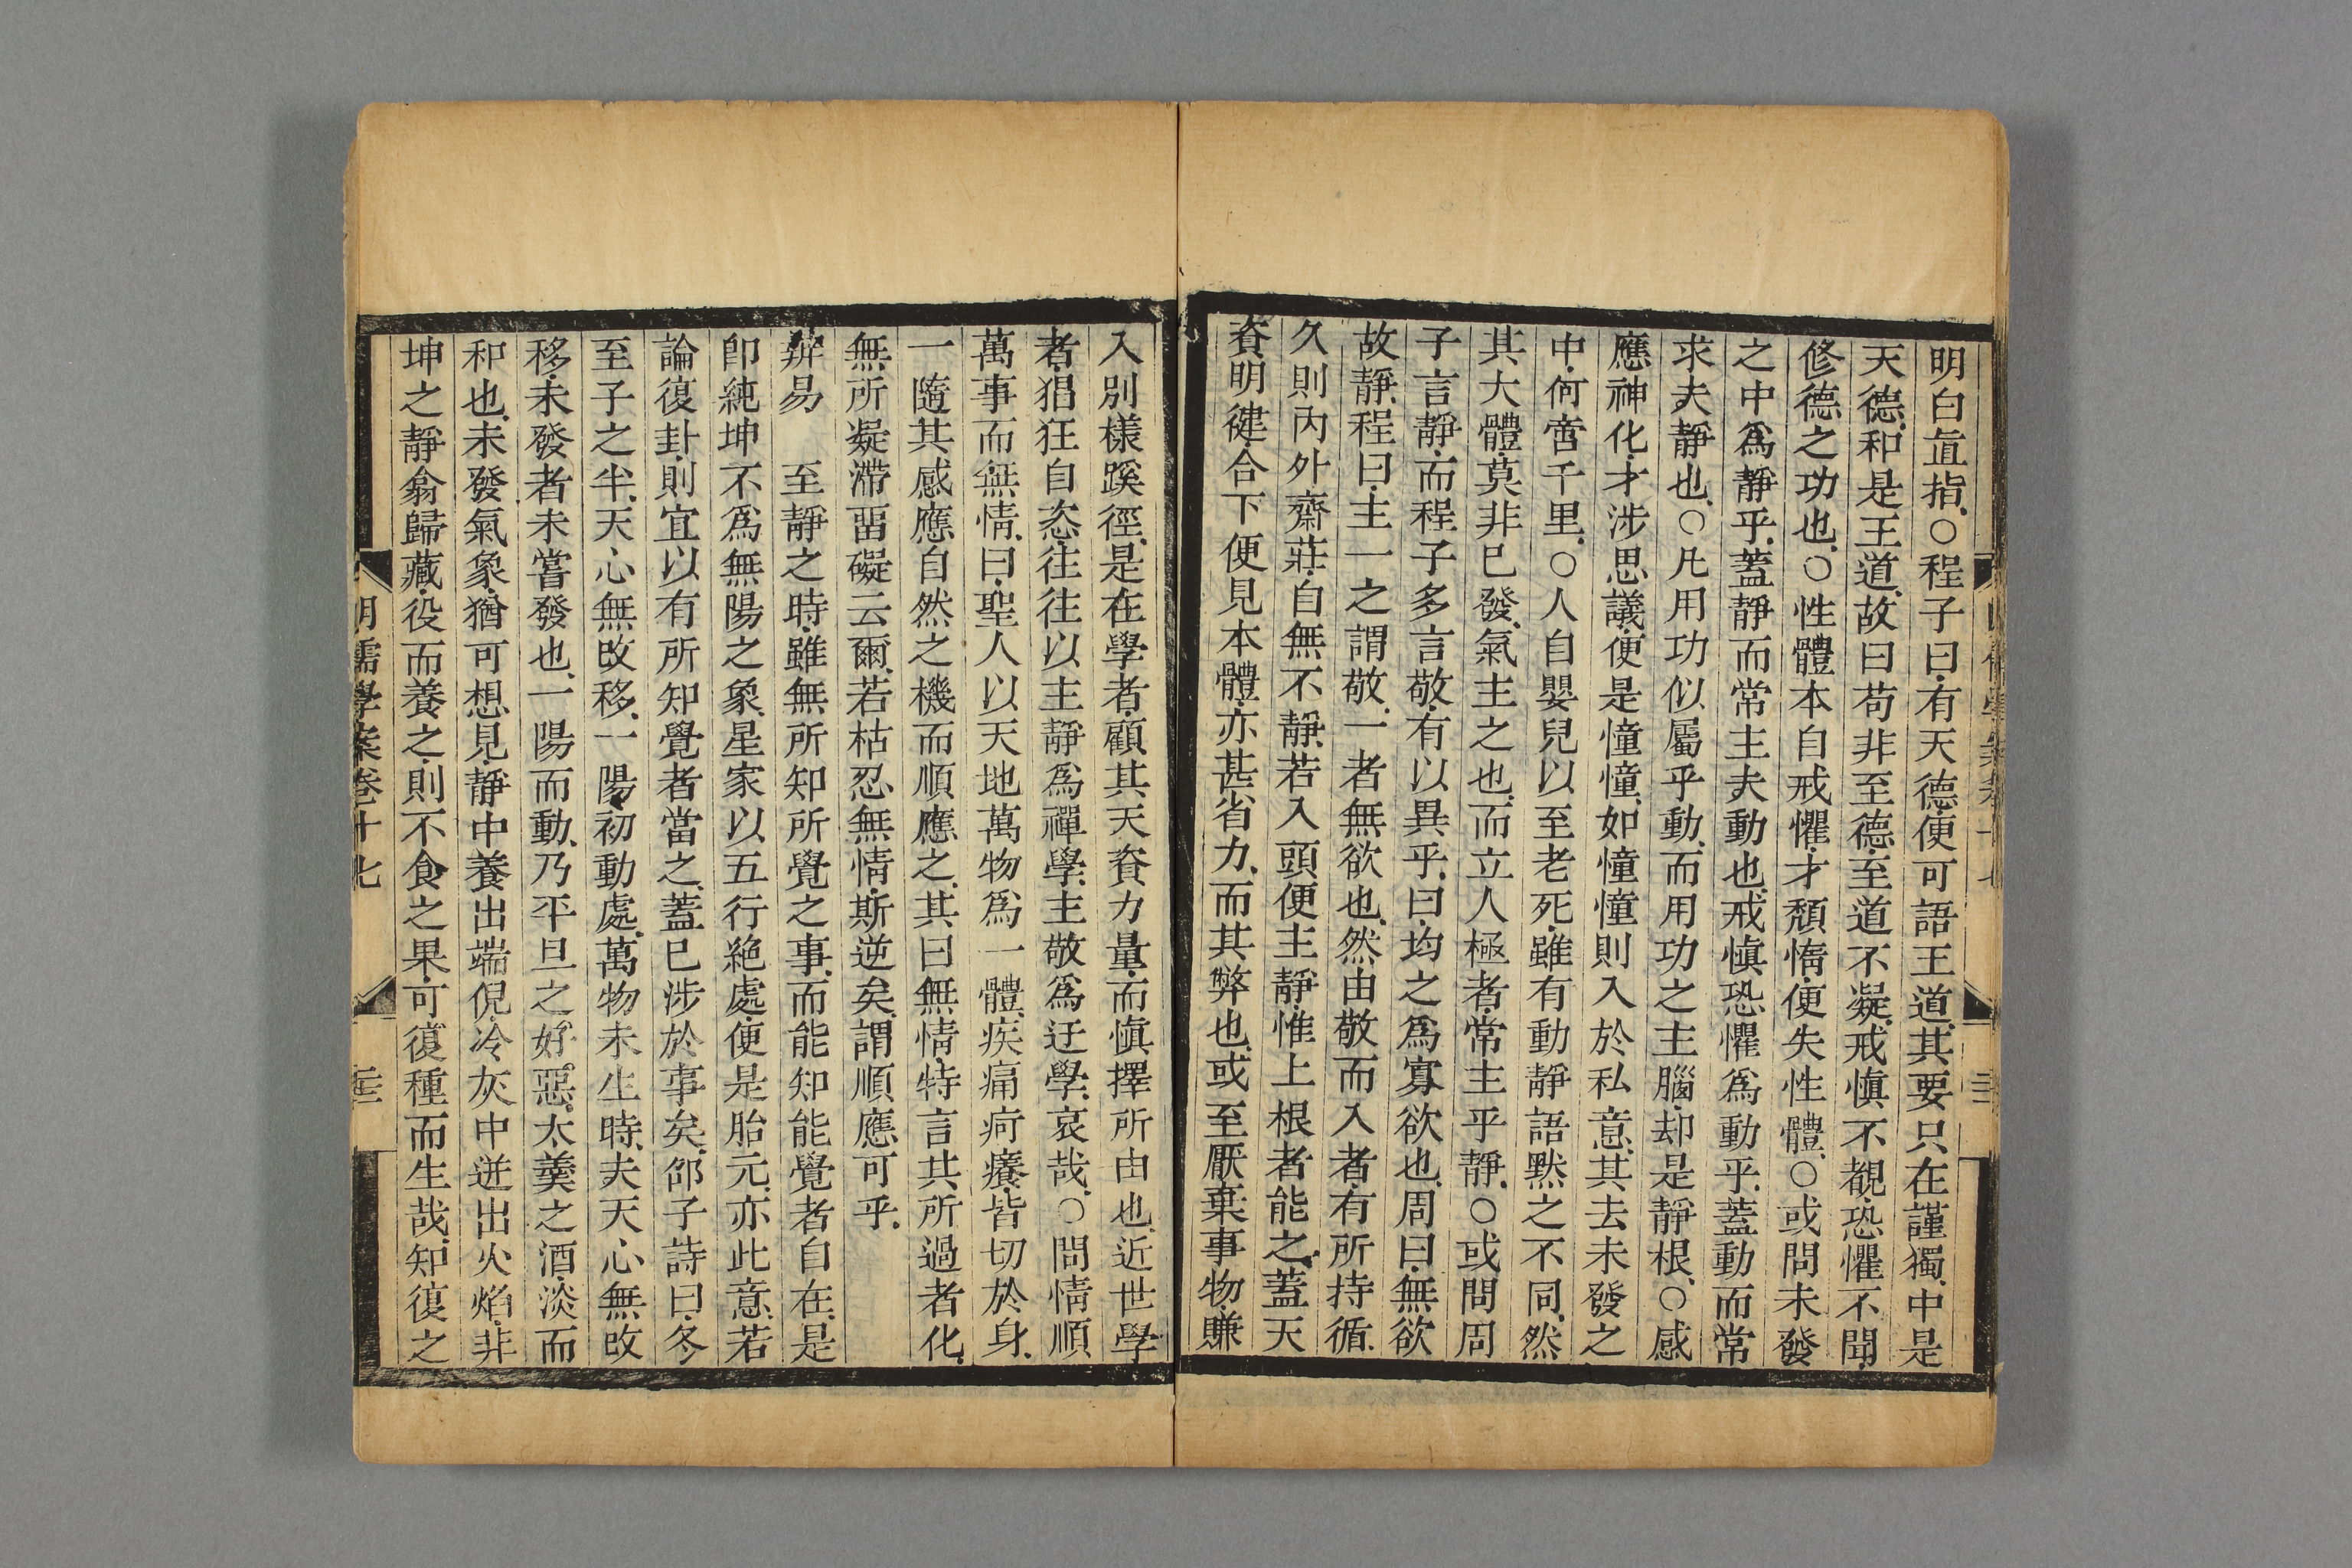 明白直指○程子曰有天德便可語王道其要只在謹獨中是
天德和是王道故曰苟非至德至道不凝戒愼不覩恐懼不聞
修德之功也○性體本自戒懼才頽惰便失性體○或問未發
之中爲靜乎蓋靜而常主夫動也戒愼恐懼爲動乎蓋動而常
求夫靜也○凡用功似屬乎動而用功之主腦却是靜根○感
應神化才涉思議便是憧憧如憧憧則入於私意其去未發之
中何啻千里○人自嬰兒以至老死雖有動靜語默之不同然
其大體莫非已發氣主之也而立人極者常主乎靜○或問周
子言靜而程子多言敬有以異乎曰均之爲寡欲也周曰無欲
故靜程曰主一之謂敬一者無欲也然由敬而入者有所持循
久則內外齋莊自無不靜若入頭便主靜惟上根者能之蓋天
資明健合下便見本體亦甚省力而其弊也或至厭棄事物賺
入別樣蹊徑是在學者顧其天資力量而愼擇所由也近世學
者猖狂自恣往往以主靜爲禪學主敬爲迂學哀哉○問情順
萬事而無情曰聖人以天地萬物爲一體疾痛疴癢皆切於身
一隨其感應自然之機而順應之其曰無情特言其所過者化
無所凝滯畱礙云爾若枯忍無情斯逆矣謂順應可乎
辨易　至靜之時雖無所知所覺之事而能知能覺者自在是
卽純坤不爲無陽之象星家以五行絕處便是胎元亦此意若
論復卦則宜以有所知覺者當之蓋已涉於事矣邵子詩曰冬
至子之半天心無改移一陽初動處萬物未生時夫天心無改
移未發者未嘗發也一陽而動乃平旦之好惡太羹之酒淡而
和也未發氣象猶可想見靜中養出端倪冷灰中迸出火焰非
坤之靜翕歸藏役而養之則不食之果可復種而生哉知復之
明儒學案卷十七
三